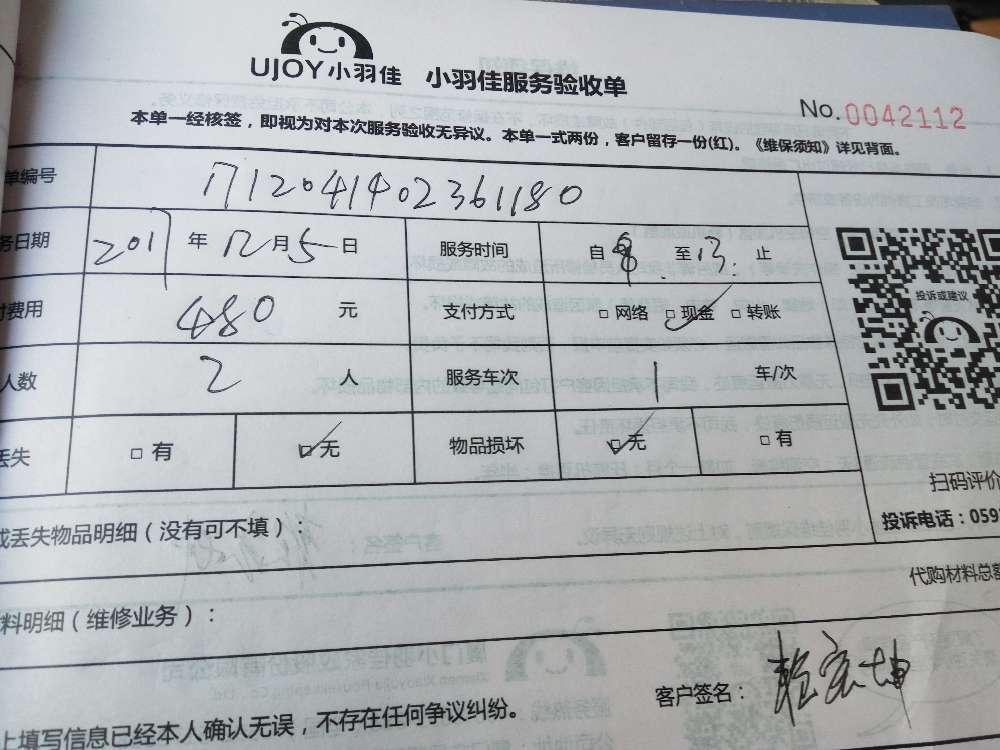 UJOY小羽佳 小羽佳服务验收单
No.0042112
本单一经核签，即视为对本次服务验收无异议。本单一式两份，客户留存一份(红)。《维保须知》详见背面。
单编号 1712041402361180
务日期 2017 年 12 月 5 日 服务时间 自 8 至 13 止
付费用 480 元 支付方式 □网络 □现金 □转账
人数 2 人 服务车次 1 车/次
丢失 □有 □无 物品损坏 □无 □有
投诉或建议
扫码评价
投诉电话：059
或丢失物品明细（没有可不填）：
代购材料总额
料明细（维修业务）：
客户签名：
上填写信息已经本人确认无误，不存在任何争议纠纷。